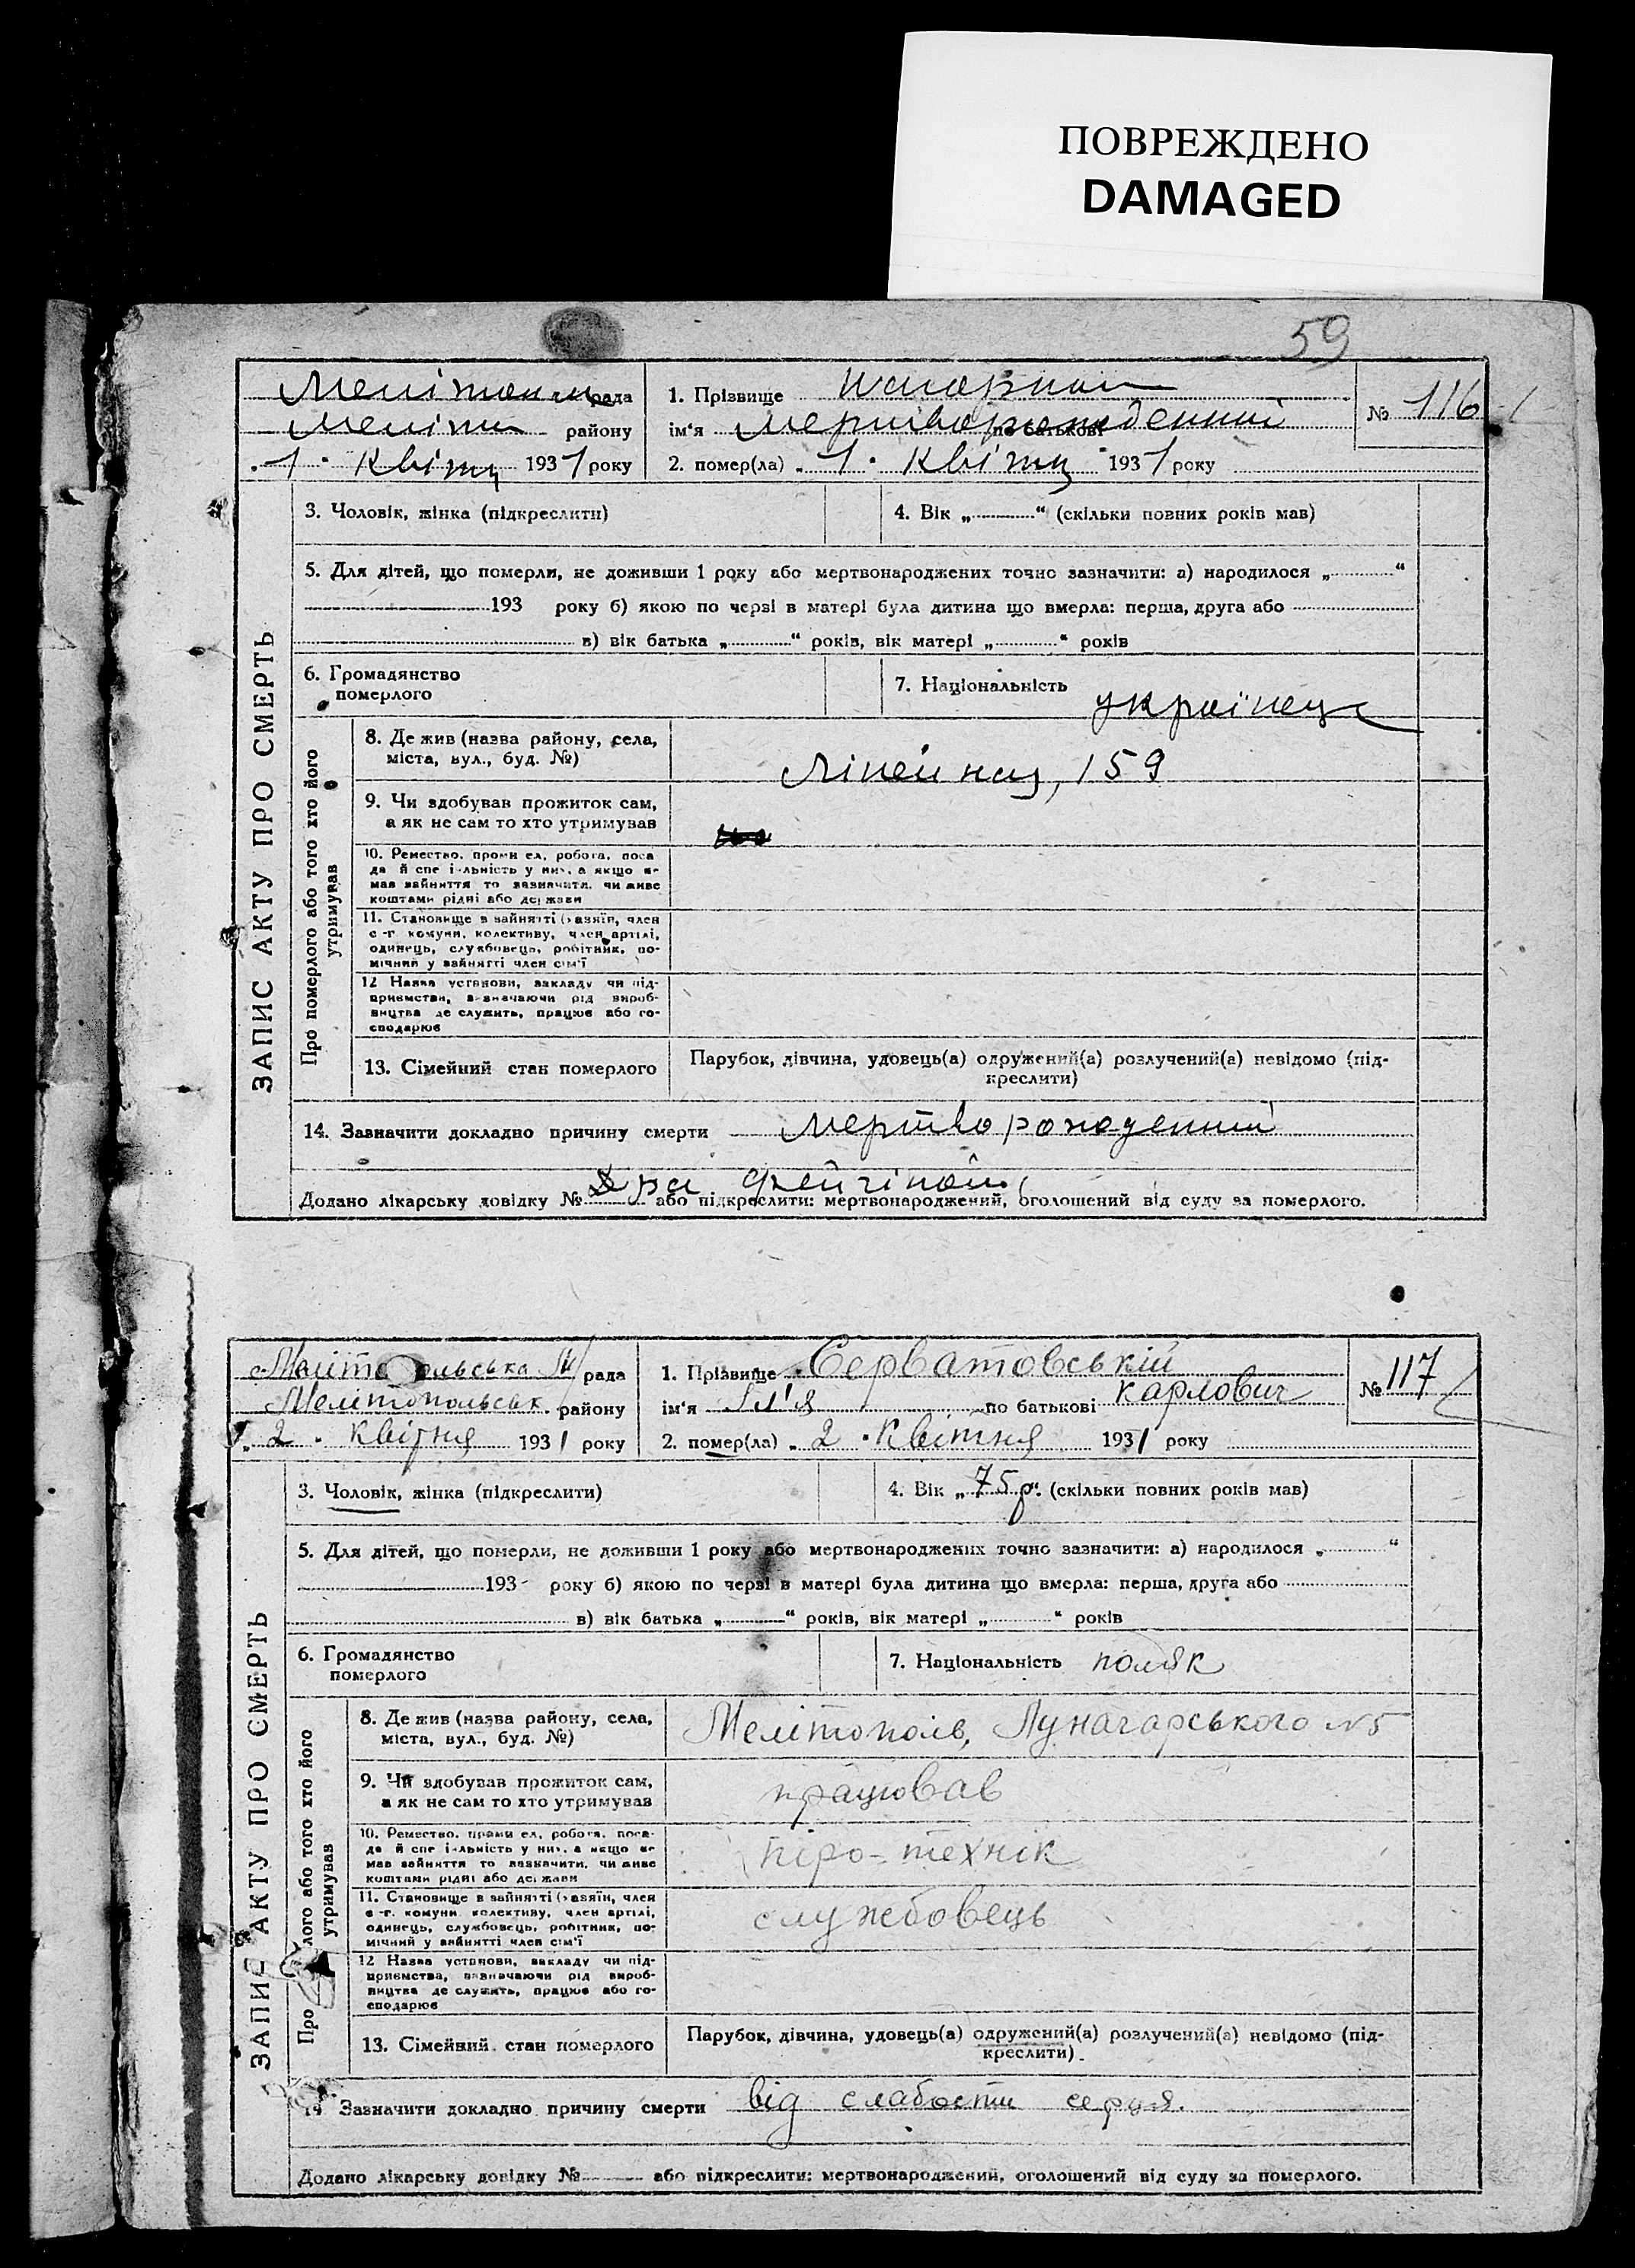 ПОВРЕЖДЕНО
DAMAGED
59
рада
району
1. Прізвище
ім'я мертворожденний по батькові
№ 116
1 193 1 року
2. помер(ла) 1 193 1 року
3. Чоловік, жінка (підкреслити)
4. Вік „ “ (скільки повних років мав)
5. Для дітей, що померли, не доживши 1 року або мертвонароджених точно зазначити: а) народилося „ “
193 року б) якою по черзі в матері була дитина що вмерла: перша, друга або
в) вік батька „ “ років, вік матері „ “ років
6. Громадянство
померлого
7. Національність українець
ЗАПИС АКТУ ПРО СМЕРТЬ
Про померлого або того хто його
утримував
8. Де жив (назва району, села,
міста, вул., буд. №)
Лінейна, 159
9. Чи здобував прожиток сам,
а як не сам то хто утримував
10. Ремество, промисел, робота, поса
да й спе і льність у них, а якщо не
мав зайняття то зазначити, чи живе
коштами рідні або держави
11. Становище в зайнятті (хазяїн, член
с.-г. комуни, колективу, член артілі,
одинець, службовець, робітник, по-
мічний у зайнятті член сім'ї
12 Назва установи, закладу чи під-
приємства, зазначаючи рід вироб-
ництва де служить, працює або го-
сподарює
13. Сімейний стан померлого
Парубок, дівчина, удовець(а) одружений(а) розлучений(а) невідомо (під-
креслити)
14. Зазначити докладно причину смерти мертворожденний
Додано лікарську довідку № або підкреслити: мертвонароджений, оголошений від суду за померлого.
Мелітопольська рада
Мелітопольськ. району
1. Прізвище Серватовській
ім'я Ілля по батькові Карлович
№ 117
„ 2 “ Квітня 193 1 року
2. помер(ла) „ 2 “ Квітня 193 1 року
3. Чоловік, жінка (підкреслити)
4. Вік „ 75 р. “ (скільки повних років мав)
5. Для дітей, що померли, не доживши 1 року або мертвонароджених точно зазначити: а) народилося „ “
193 року б) якою по черзі в матері була дитина що вмерла: перша, друга або
в) вік батька „ “ років, вік матері „ “ років
6. Громадянство
померлого
7. Національність поляк
ЗАПИС АКТУ ПРО СМЕРТЬ
Про лого або того хто його
утримував
8. Де жив (назва району, села,
міста, вул., буд. №)
Мелітополь, Луначарського № 5
9. Чи здобував прожиток сам,
а як не сам то хто утримував
працював
10. Ремество, промисел, робота, поса-
да й спе і льність у них, а якщо не
мав зайняття то зазначити, чи живе
коштами рідні або держави
Піро-технік
11. Становище в зайнятті (хазяїн, член
с.-г. комуни, колективу, член артілі,
одинець, службовець, робітник, по-
мічний у зайнятті член сім'ї
службовець
12 Назва установи, закладу чи під-
приємства, зазначаючи рід вироб-
ництва де служить, працює або го-
сподарює
13. Сімейний стан померлого
Парубок, дівчина, удовець(а) одружений(а) розлучений(а) невідомо (під-
креслити)
14 Зазначити докладно причину смерти від слабости серця.
Додано лікарську довідку № або підкреслити: мертвонароджений, оголошений від суду за померлого.